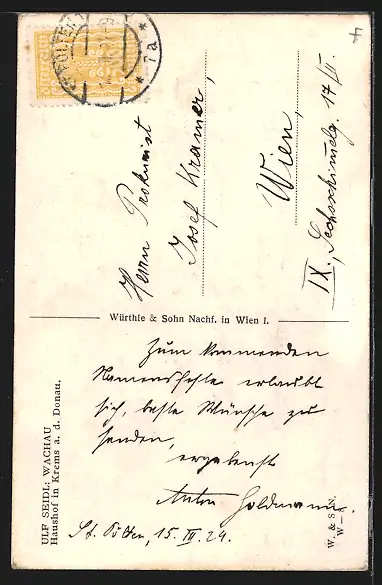 ST. PÖLTEN
* 7a *
Herrn Prokurist
Josef Kramer,
Wien,
IX., Sechsschimmelg. 17/II.
Würthle & Sohn Nachf. in Wien I.
Zum kommenden
Namensfeste erlaubt
sich, beste Wünsche zu
senden,
ergebenst
Anton Goldmann.
St. Pölten, 15. III. 24.
ULF SEIDL: WACHAU
Haushof in Krems a. d. Donau.
W. & S. N.
W—